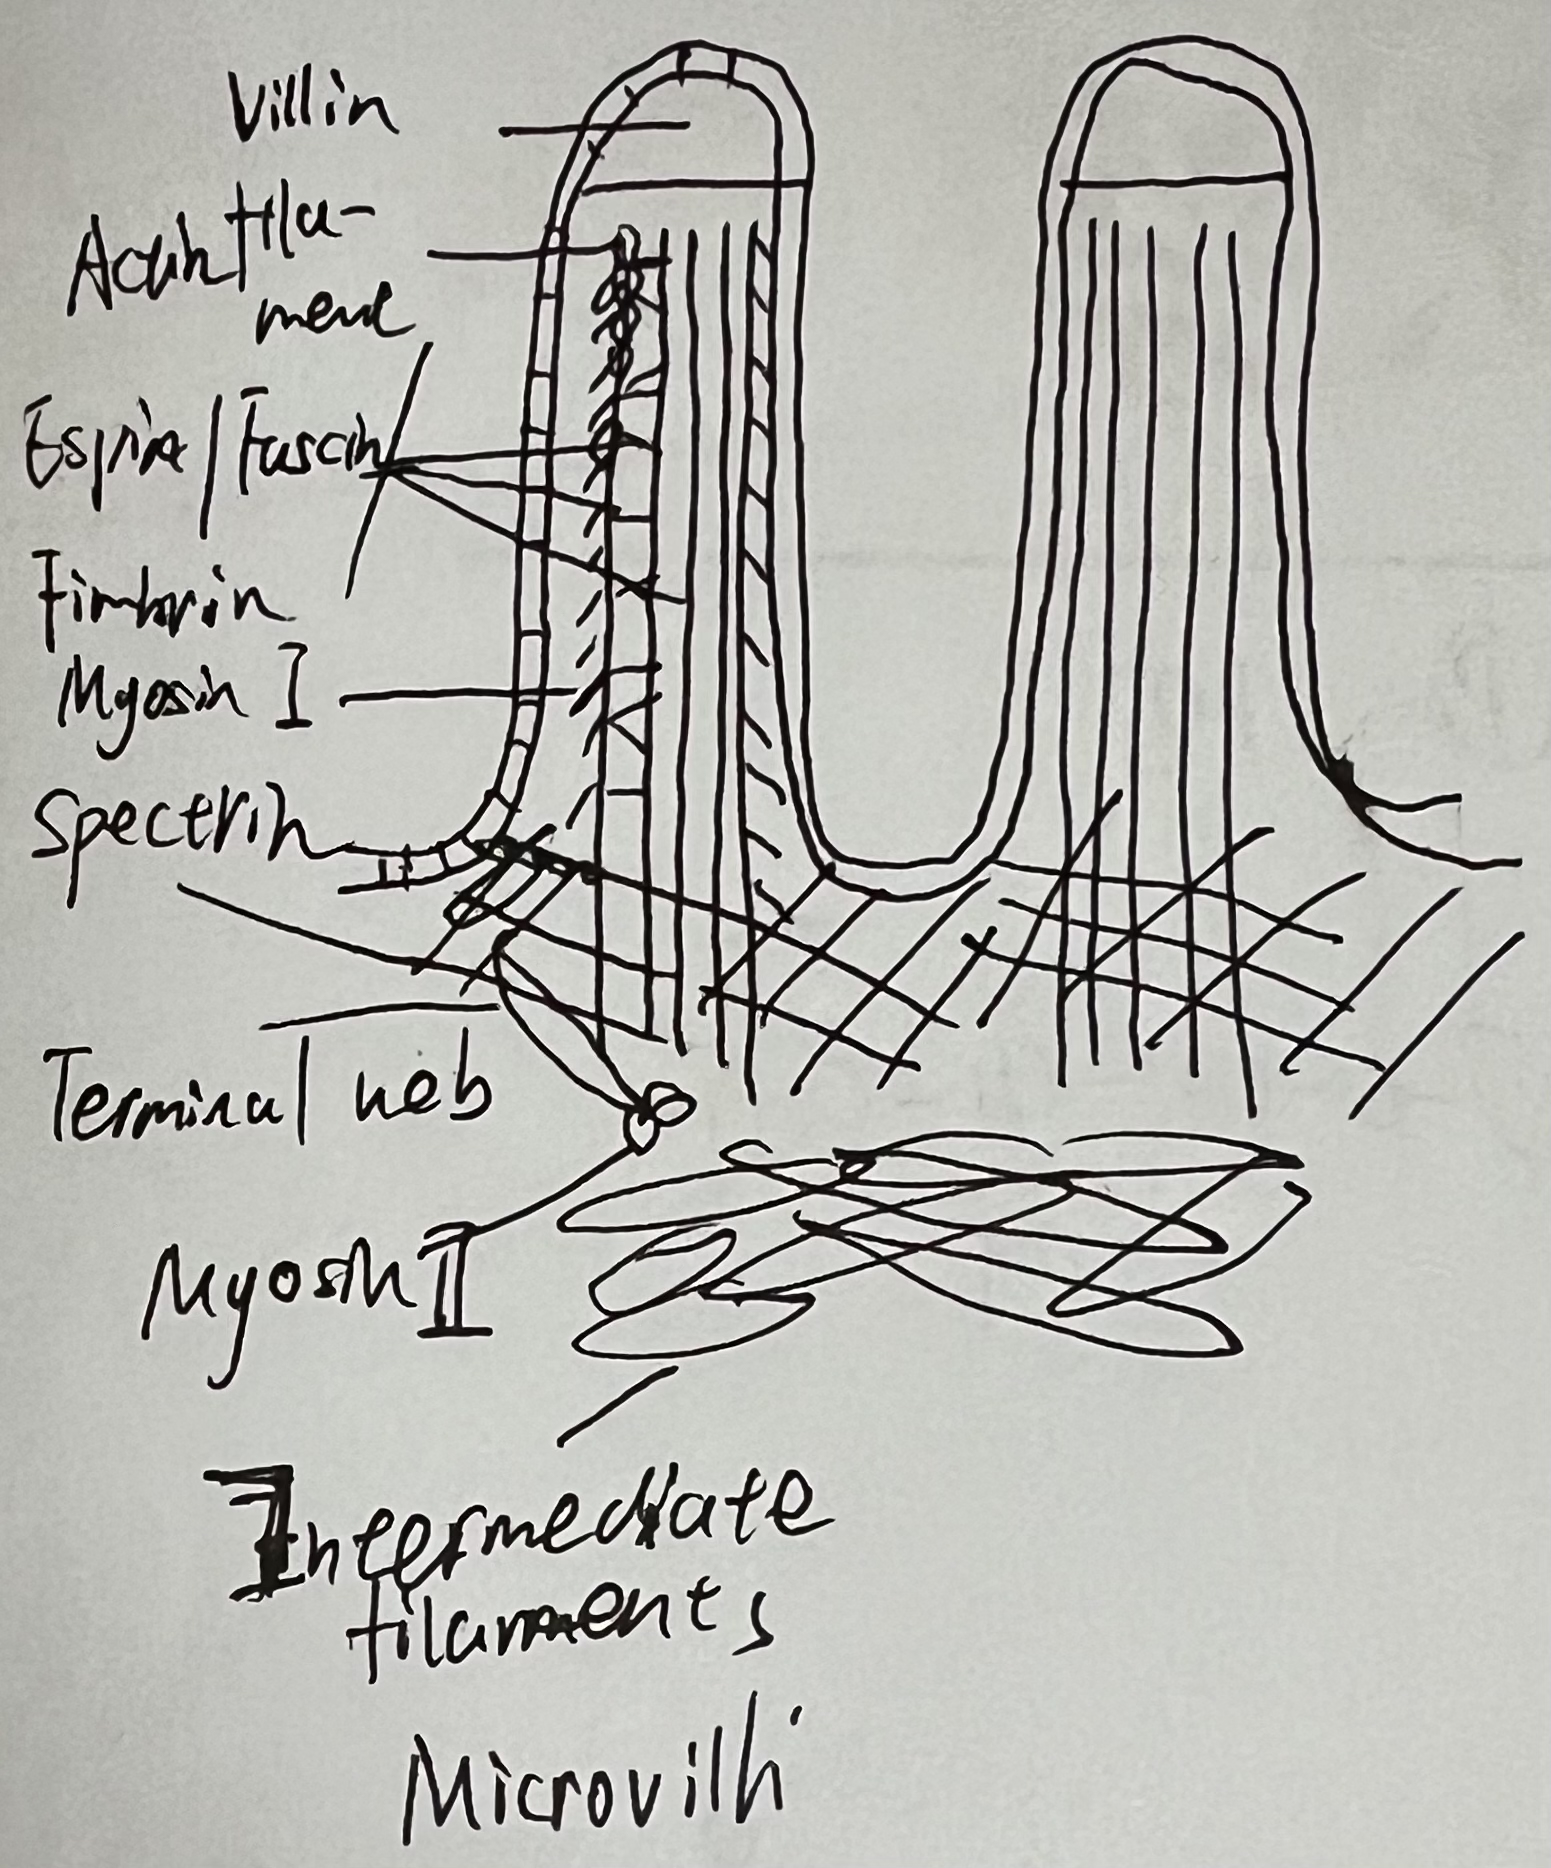 Villin
Actin fila-
ment
Espin/Fascin/
Fimbrin
Myosin I
Spectrin
Terminal web
Myosin II
Intermediate
filaments
Microvilli